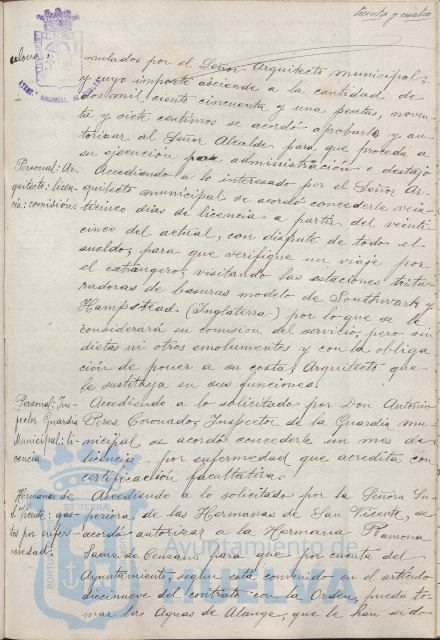 treinta y cuatro
mulados por el Señor Arquitecto municipal,
y cuyo importe asciende a la cantidad de
dos mil ciento cincuenta y una pesetas, noven-
ta y siete centimos se acordó aprobarlo y au-
torizar al Señor Alcalde para que proceda a
su ejecución por administración o destajo
Personal: Ar-
quitecto: licen-
cia: comisión.
Accediendo a lo interesado por el Señor Ar-
quitecto municipal se acordó concederle vein-
ticinco dias de licencia a partir del veinti-
cinco del actual, con disfrute de todo el
sueldo, para que verifique un viaje por
el extrangero, visitando las estaciones tritu-
radoras de basuras modelo de Southwark y
Hampstead (Inglaterra) por lo que se le
considerará en comision del servicio, pero sin
dietas ni otros emolumentos y con la obliga-
ción de poner a su costa, Arquitecto que
le sustituya en sus funciones.
Personal: Ins-
pector Guardia
Municipal: li-
cencia
Accediendo a lo solicitado por Don Antonio
Peres Coronado, Inspector de la Guardia mu-
nicipal se acordó concederle un mes de
licencia por enfermedad que acredita con
certificación facultativa.
Hermanas de
S. Vicente: gas-
tos por enfer-
medad.
Accediendo a lo solicitado por la Señora Su-
periora de las Hermanas de San Vicente, se
acordó autorizar a la Hermana Ramona
Saenz de Cenzano para que por cuenta del
Ayuntamiento, segun está convenido en el artículo
diecinueve del contrato con la Orden, pueda to-
mar las Aguas de Alange, que le han sido
Ayuntamiento de
HUELVA